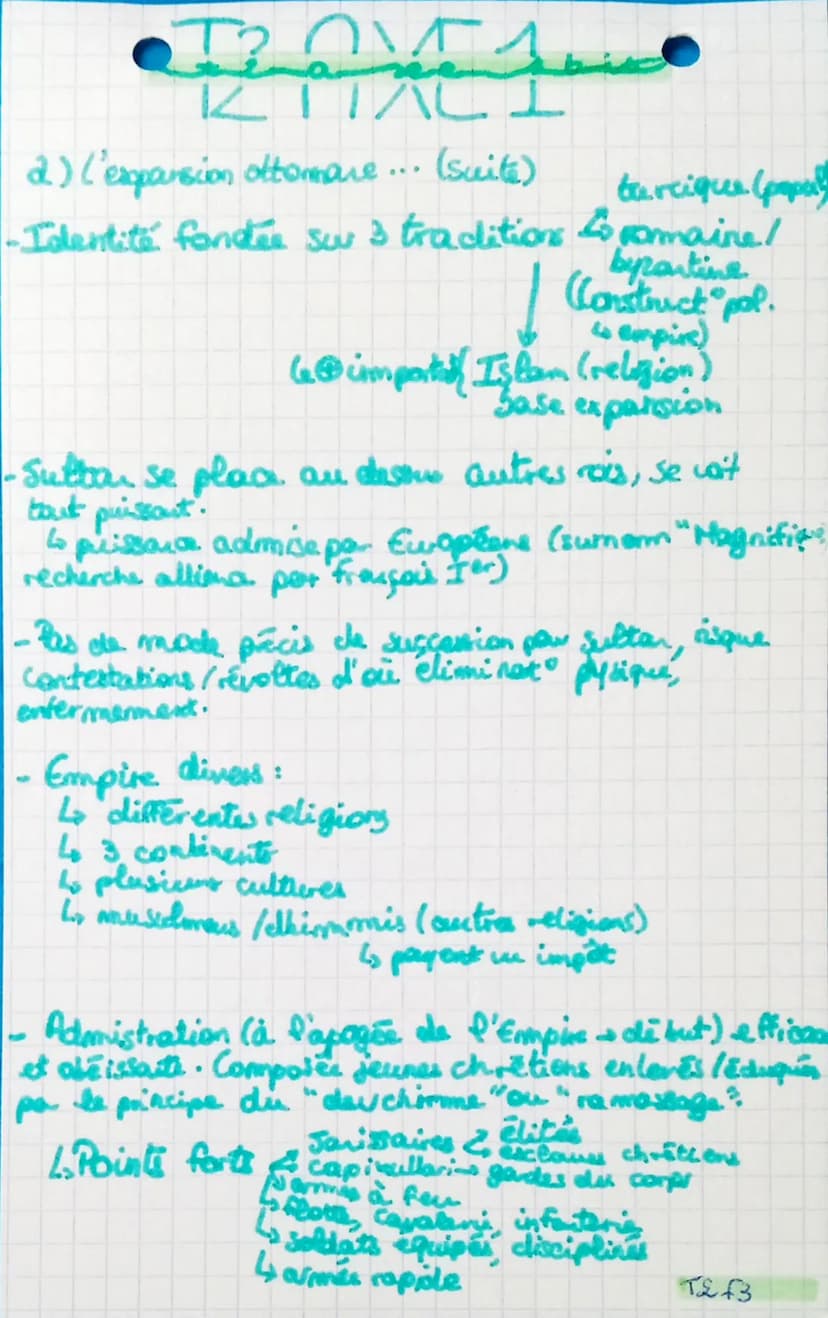 T2 AXE 1
2) L'expansion ottomane ... (suite)
turcique
- Identité fondée sur 3 traditions ↳ romaine /
byzantine
(Construct° pol.
↳ empire)
le ⊕ important Islam (religion)
base expansion
- Sultan se place au dessus autres rois, se voit
tout puissant.
↳ puissance admise par Européens (surnom "Magnifique
recherche alliance par François Ier)
- Pas de mode précis de succession pour sultan, risque
contestations / révoltes d'où éliminat° pysique,
enfermement.
- Empire divers :
↳ différentes religions
↳ 3 continents
↳ plusieurs cultures
↳ musulmans / dhimmis (autres religions)
↳ payent un impôt
- Admistration (à l'apogée de l'Empire → début) efficace
et obéissante. Composée jeunes chrétiens enlevés / éduqués
par le principe du "devchirme" ou "ramassage".
↳ Points forts
Janissaires élites esclaves chrétiens
gardes du corps
↳ armes à feu
↳ flotte, cavalerie, infanterie
↳ soldats équipés, disciplinés
↳ armée rapide
T2 f3